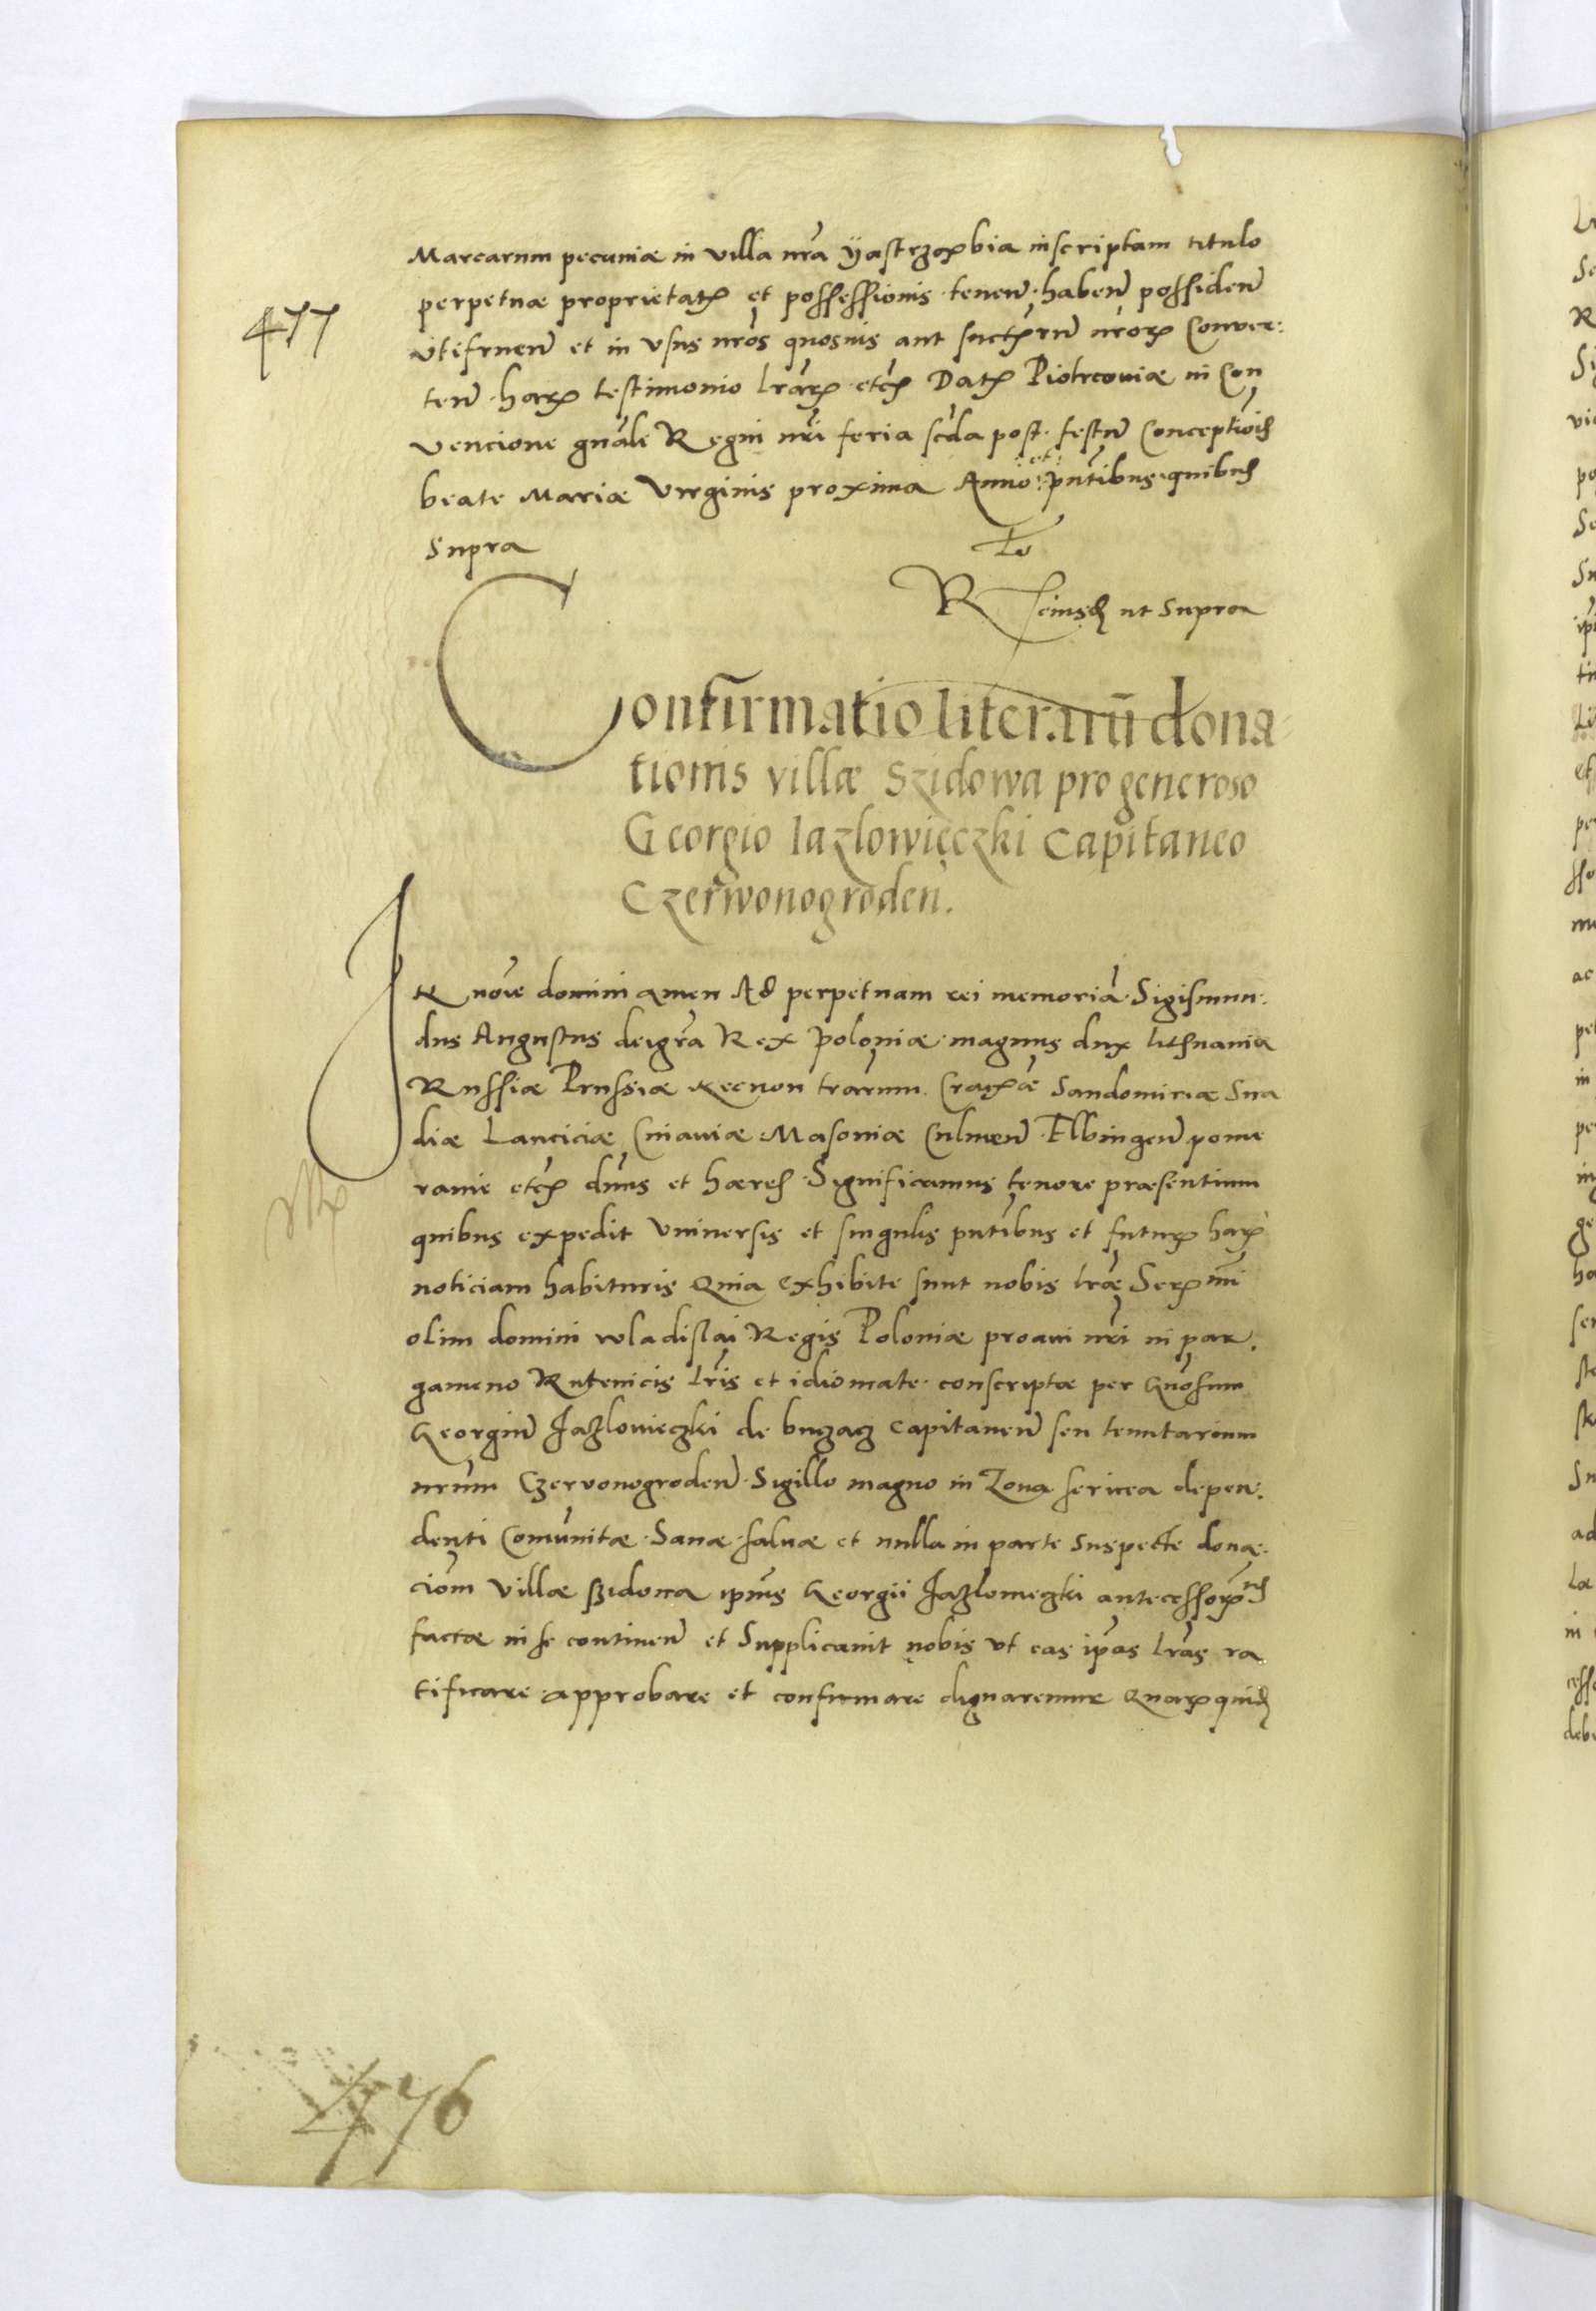 Marcarum pecuniæ in villa nrā ÿastrzøbia inscriptam titulo
477
perpetuæ proprietatꝭ et possessionis tenen̄ haben̄ possiden̄
vtifruen̄ et in vsus nrōs quosuis aut succꝭrū nrōrꝝ Conuer:
ten̄ harꝝ testimonio lrārꝝ etcꝭ Datꝭ Piotrcouiæ in Con
vencione gnāli Regni nrī feria scḍa post festū Conceptiōis
beate Mariæ Virginis proxima Anno et pn̄tibus quibus
Supra
To
R eiusd ut Supra
Confirmatio literarū dona
tionis villæ Szidowa pro generoso
Georgio Iazlowięczki Capitaneo
Czerwonogroden̄.
IN noīe domini amen Ad perpetuam rei memoriā Sigismun:
dus Augustus dei gr̄a Rex Poloniæ magnus dux lithuaniæ
Russiæ Prussiæ Necnon trārum Cracꝭæ Sandomiriæ Sira
diæ Lanciciæ Cuiauiæ Masoniæ Culmen̄ Elbingen̄ pome
ranie etcꝭ dn̄us et hæres Significamus tenore præsentium
quibus expedit vniuersis et singulis pn̄tibus et futurꝭ harꝝ
noticiam habituris Quia Exhibite sunt nobis lræ Serꝭmi
olim domini wladislai Regis Poloniæ proaui nrī in par,
gameno Rutenicis lrīs et idiomate conscriptæ per Gnōsum
Georgiū Jazlowieczki de buczacz capitaneū seu tenutarium
nrūm Czerwonogroden̄ Sigillo magno in Zona sericea depen:
denti Comūnitæ Sanæ saluæ et nulla in parte suspecte donæ:
ciōm villæ szidowa ipīus Georgii Jazlowieczki antecessorꝝ
factæ in se continen̄ et Supplicauit nobis vt eas ipas lrās ra
tificare approbare et confirmare dignaremur Quarꝝ quid
476